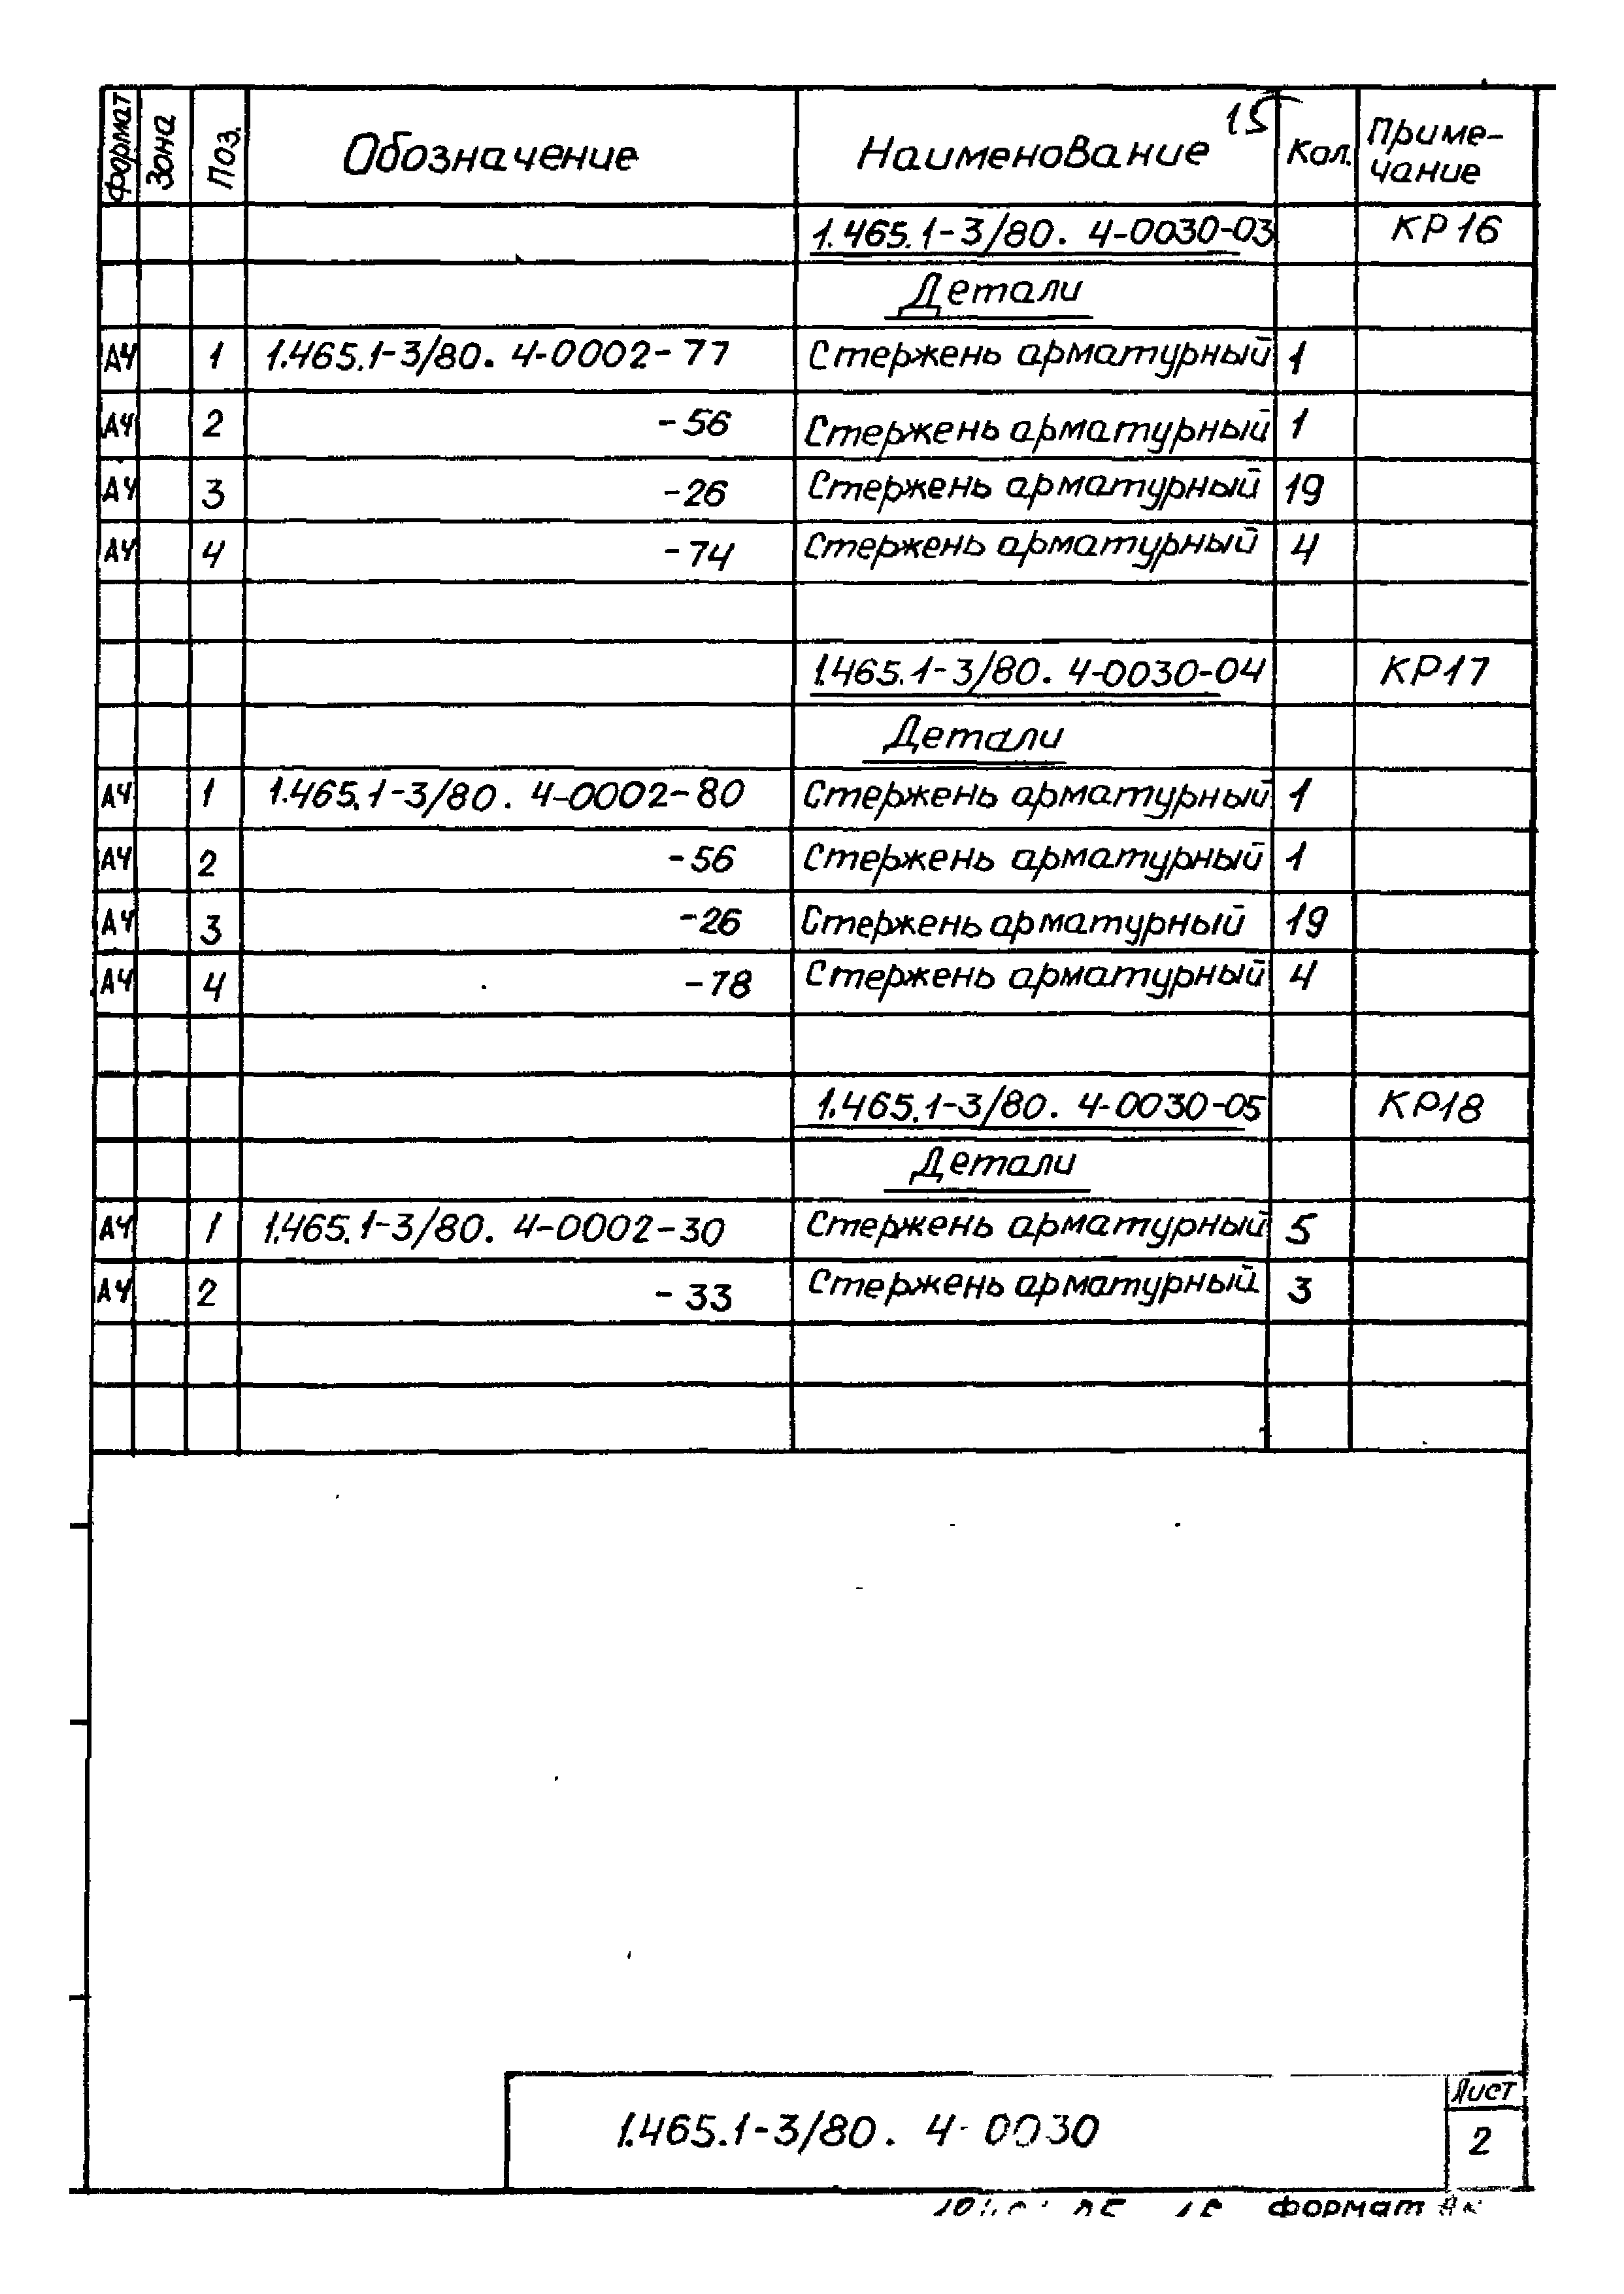 15
Формат Зона Поз. Обозначение Наименование Кол. Приме-
чание
1.465.1-3/80. 4-0030-03 КР16
Детали
А4 1 1.465.1-3/80. 4-0002-77 Стержень арматурный 1
А4 2 -56 Стержень арматурный 1
А4 3 -26 Стержень арматурный 19
А4 4 -74 Стержень арматурный 4
1.465.1-3/80. 4-0030-04 КР17
Детали
А4 1 1.465.1-3/80. 4-0002-80 Стержень арматурный 1
А4 2 -56 Стержень арматурный 1
А4 3 -26 Стержень арматурный 19
А4 4 -78 Стержень арматурный 4
1.465.1-3/80. 4-0030-05 КР18
Детали
А4 1 1.465.1-3/80. 4-0002-30 Стержень арматурный 5
А4 2 -33 Стержень арматурный 3
1.465.1-3/80. 4-0030
Лист
2
формат